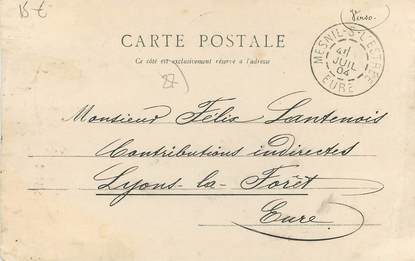 15 €
Verso.
CARTE POSTALE
Ce côté est exclusivement réservé à l'adresse
MESNIL-S-L'ESTRÉE
JUIL
04
EURE
27)
Monsieur Félix Lantenois
Contributions indirectes
Lyons-la-Forêt
Eure